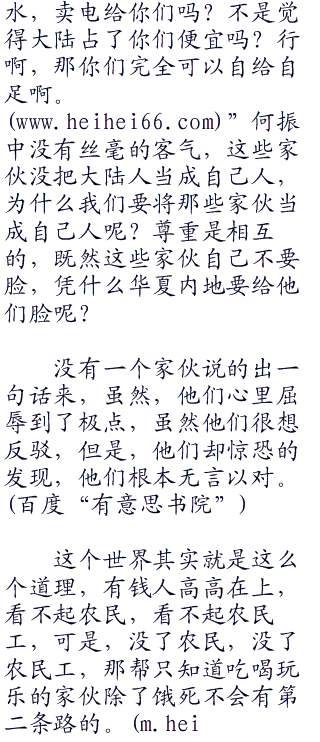 水，卖电给你们吗？不是觉
得大陆占了你们便宜吗？行
啊，那你们完全可以自给自
足啊。
(www.heihei66.com)”何振
中没有丝毫的客气，这些家
伙没把大陆人当成自己人，
为什么我们要将那些家伙当
成自己人呢？尊重是相互
的，既然这些家伙自己不要
脸，凭什么华夏内地要给他
们脸呢？
没有一个家伙说的出一
句话来，虽然，他们心里屈
辱到了极点，虽然他们很想
反驳，但是，他们却惊恐的
发现，他们根本无言以对。
(百度“有意思书院”)
这个世界其实就是这么
个道理，有钱人高高在上，
看不起农民，看不起农民
工，可是，没了农民，没了
农民工，那帮只知道吃喝玩
乐的家伙除了饿死不会有第
二条路的。(m.hei